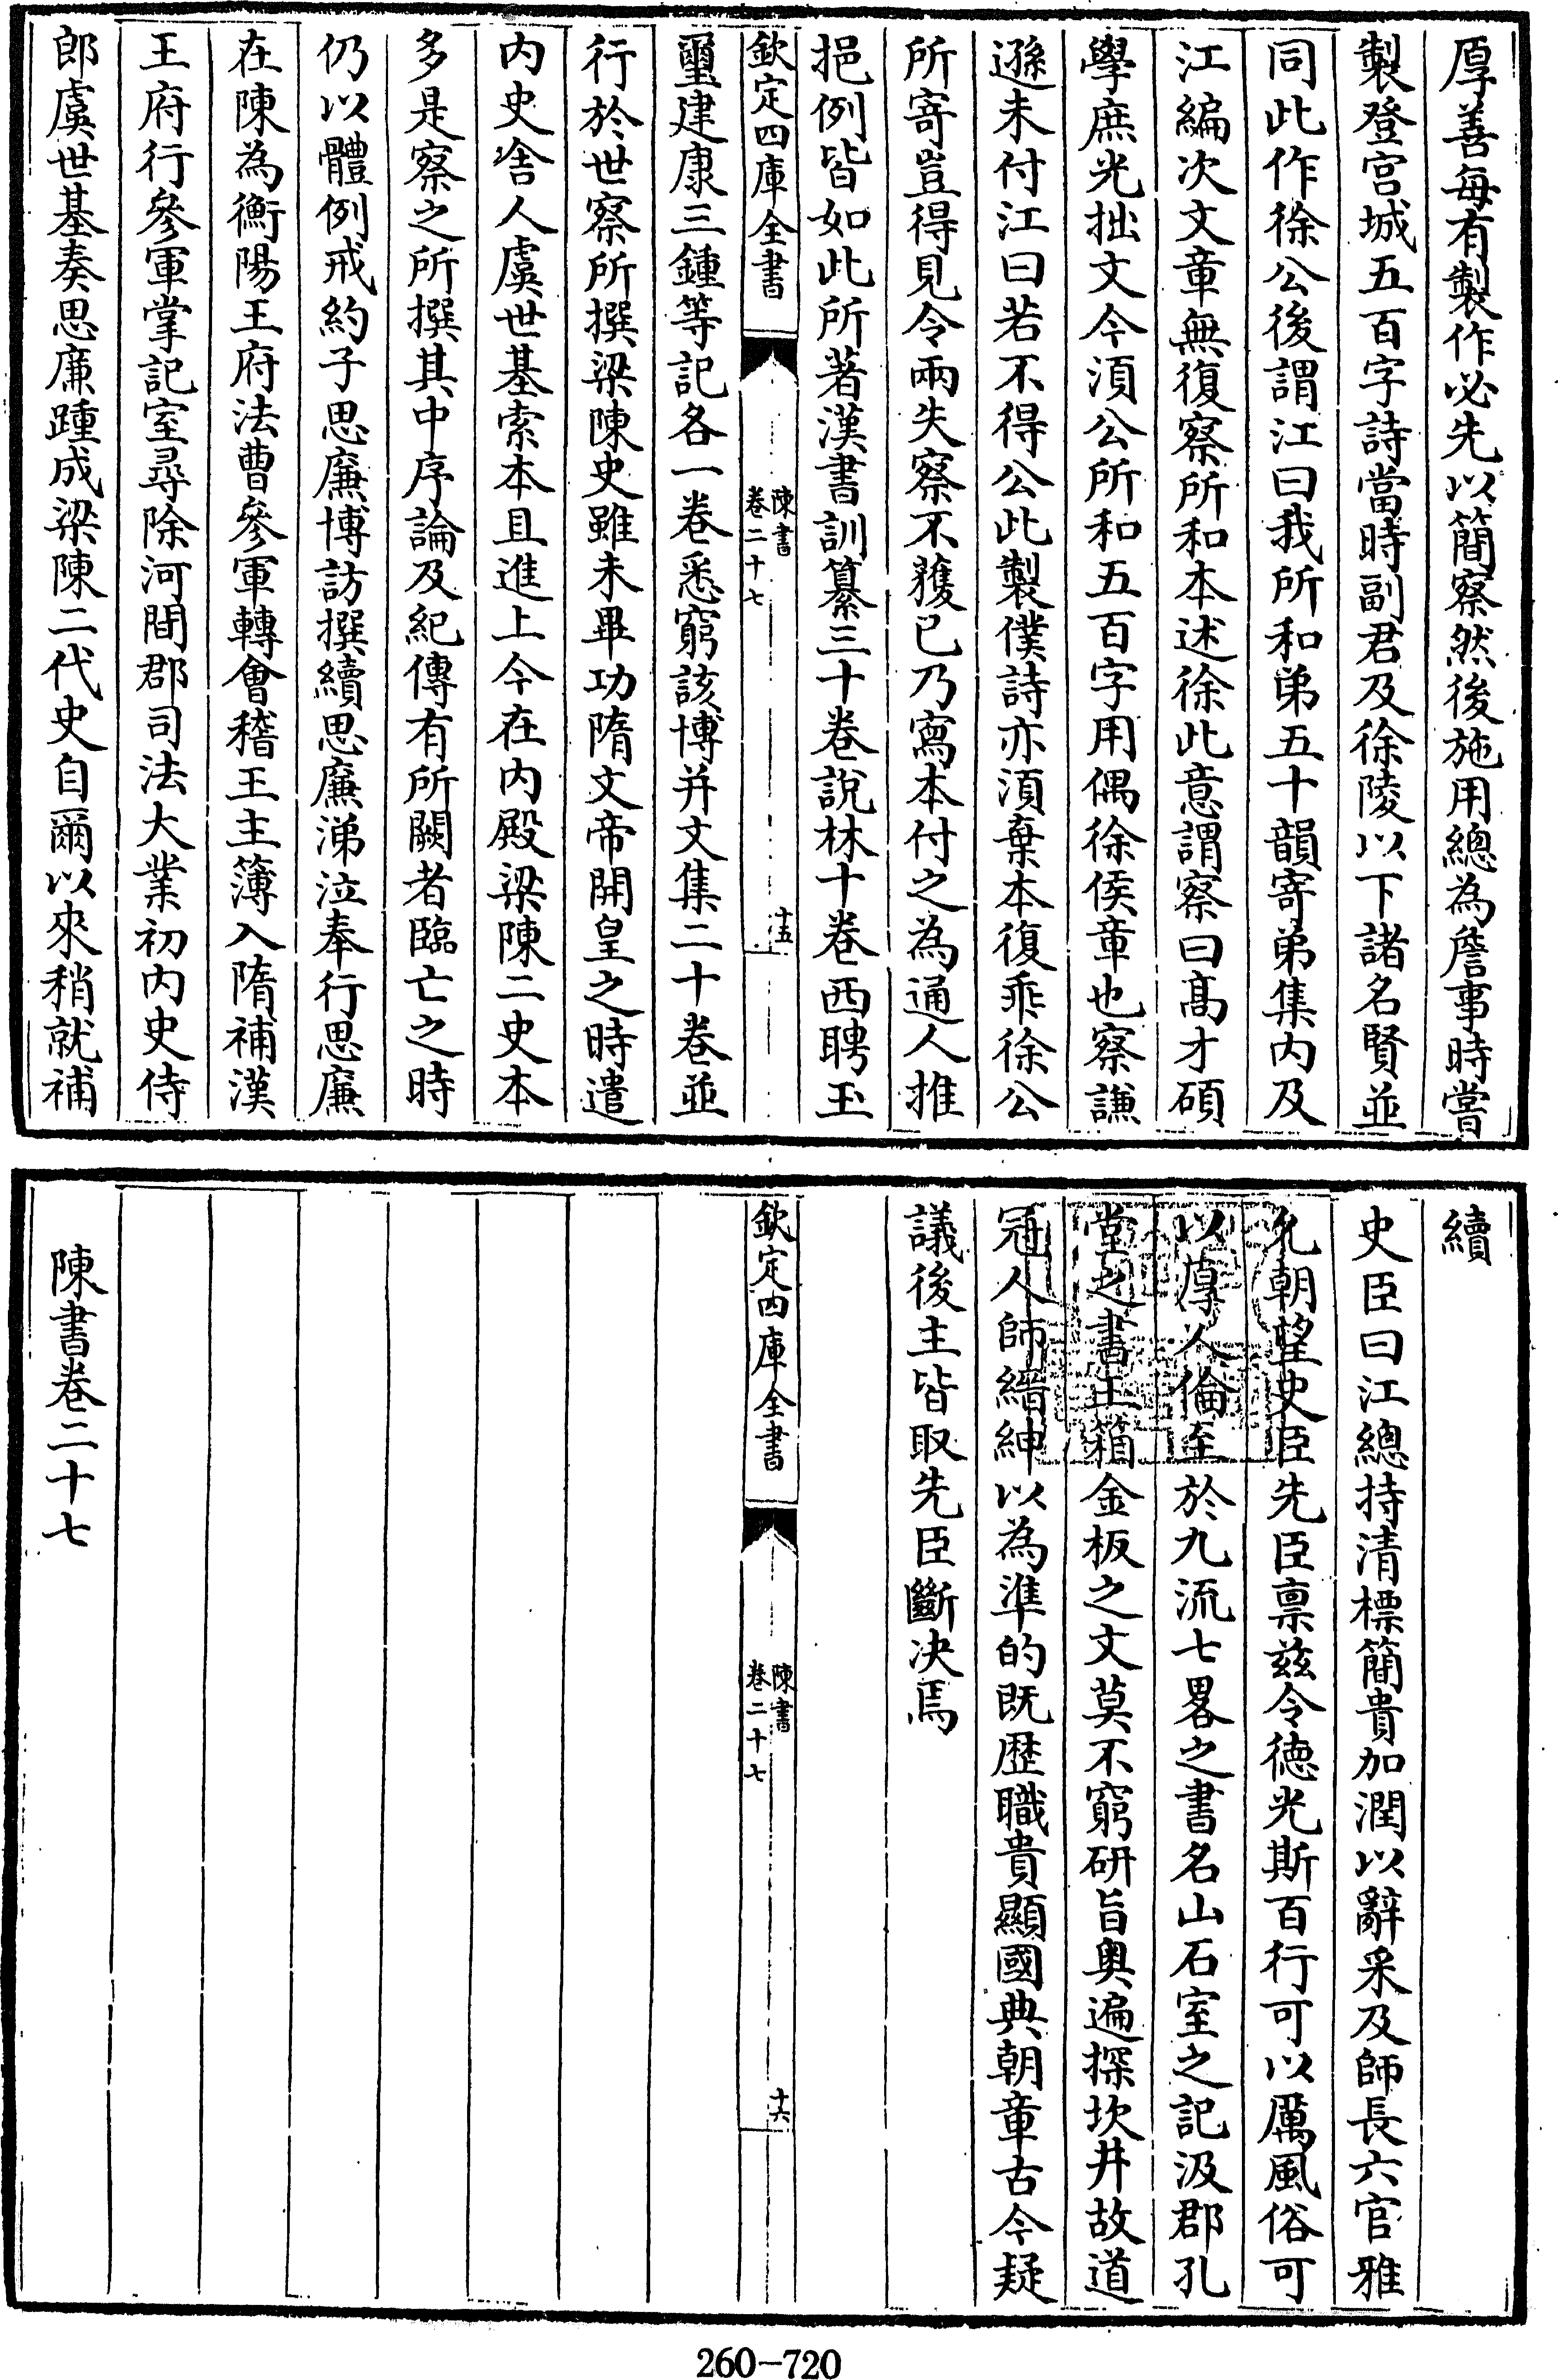 厚善每有製作必先以簡察然後施用總為詹事時嘗
製登宫城五百字詩當時副君及徐陵以下諸名賢並
同此作徐公後謂江曰我所和弟五十韻寄弟集内及
江編次文章無復察所和本述徐此意謂察曰髙才碩
學庶光拙文今湏公所和五百字用偶徐侯章也察謙
遜未付江曰若不得公此製僕詩亦湏棄本復乖徐公
所寄豈得見令兩失察不獲已乃寫本付之為通人推
挹例皆如此所著漢書訓纂三十卷說林十卷西聘玉
欽定四庫全書
陳書
卷二十七
十五
璽建康三鍾等記各一卷悉窮該博并文集二十卷並
行於世察所撰梁陳史雖未畢功隋文帝開皇之時遣
内史舍人虞世基索本且進上今在内殿梁陳二史本
多是察之所撰其中序論及紀傳有所闕者臨亡之時
仍以體例戒約子思廉博訪撰續思廉涕泣奉行思廉
在陳為衡陽王府法曹參軍轉會稽王主簿入隋補漢
王府行參軍掌記室尋除河間郡司法大業初内史侍
郎虞世基奏思廉踵成梁陳二代史自爾以來稍就補
續
史臣曰江總持清標簡貴加潤以辭采及師長六官雅
允朝望史臣先臣禀兹令徳光斯百行可以厲風俗可
以厚人倫至於九流七畧之書名山石室之記汲郡孔
堂之書玉箱金板之文莫不窮研旨奥遍探坎井故道
冠人師縉紳以為準的既歴職貴顯國典朝章古今疑
議後主皆取先臣斷决焉
欽定四庫全書
陳書
卷二十七
十六
陳書卷二十七
260-720